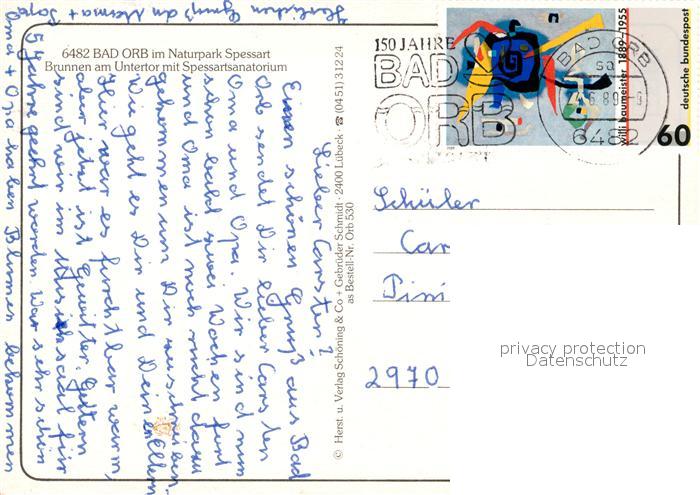 6482 BAD ORB im Naturpark Spessart
Brunnen am Untertor mit Spessartsanatorium
Lieber Carsten!
Einen schönen Gruß aus Bad
Orb sendet Dir lieber Carsten
Oma und Opa. Wir sind nun
schon bald zwei Wochen fort
und Oma ist noch nicht dazu
gekommen um Dir zu schreiben.
Wie geht es Dir und Deinen Eltern
Hier war es furchtbar warm,
aber jetzt ist Gewitter. Gestern
sind wir im Musiksaal für
54 Jahre geehrt worden. War sehr schön
Oma + Opa haben Blumen bekommen
Herzlichen Gruß an Mama + Papa
© Herst. u. Verlag Schöning & Co + Gebrüder Schmidt · 2400 Lübeck · ☎ (0451) 31224
as Bestell-Nr. Orb 530
150 JAHRE
BAD
ORB
BAD ORB
6482
willi baumeister 1889-1955
deutsche bundespost
60
Schüler
Car
2970
privacy protection
Datenschutz